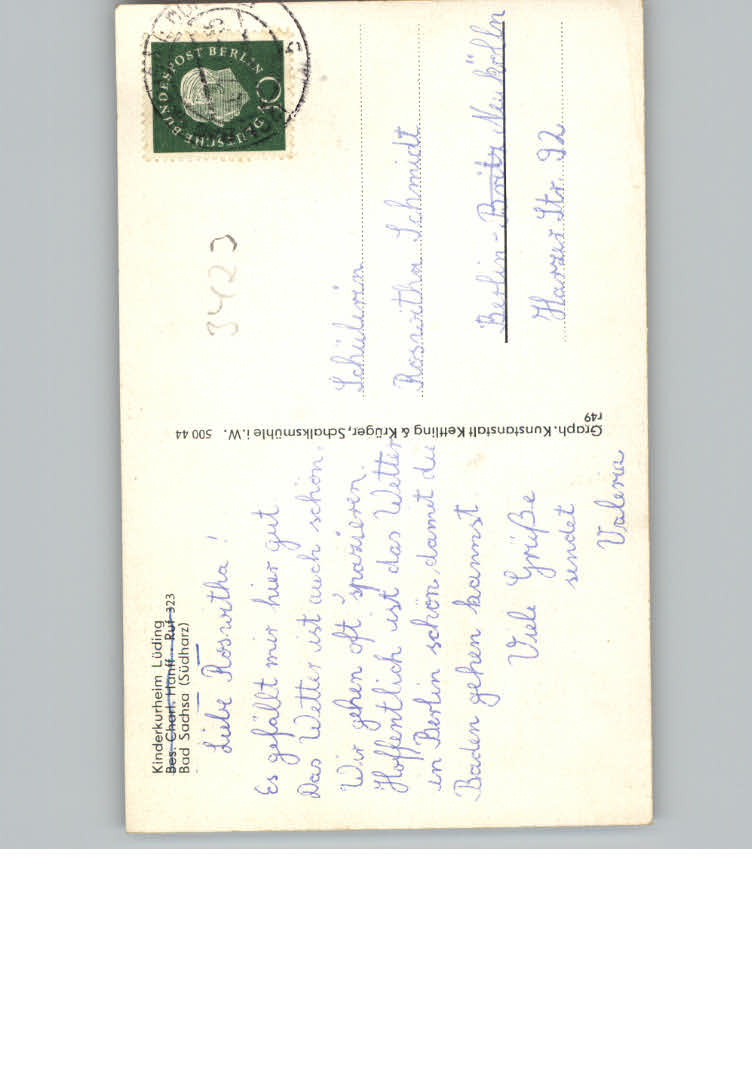 Kinderkurheim Lüding
Bes. Charl. Hanff · Ruf 323
Bad Sachsa (Südharz)
Liebe Roswitha!
Es gefällt mir hier gut
Das Wetter ist auch schön.
Wir gehen oft spazieren.
Hoffentlich ist das Wetter
in Berlin schön, damit du
Baden gehen kannst.
Viele Grüße
sendet
Valeria
Graph. Kunstanstalt Kettling & Krüger, Schalksmühle i.W. 500 44
r49
3423
DEUTSCHE BUNDESPOST BERLIN
Schülerin
Roswitha Schmidt
Berlin-Britz Neukölln
Harzer Str. 92